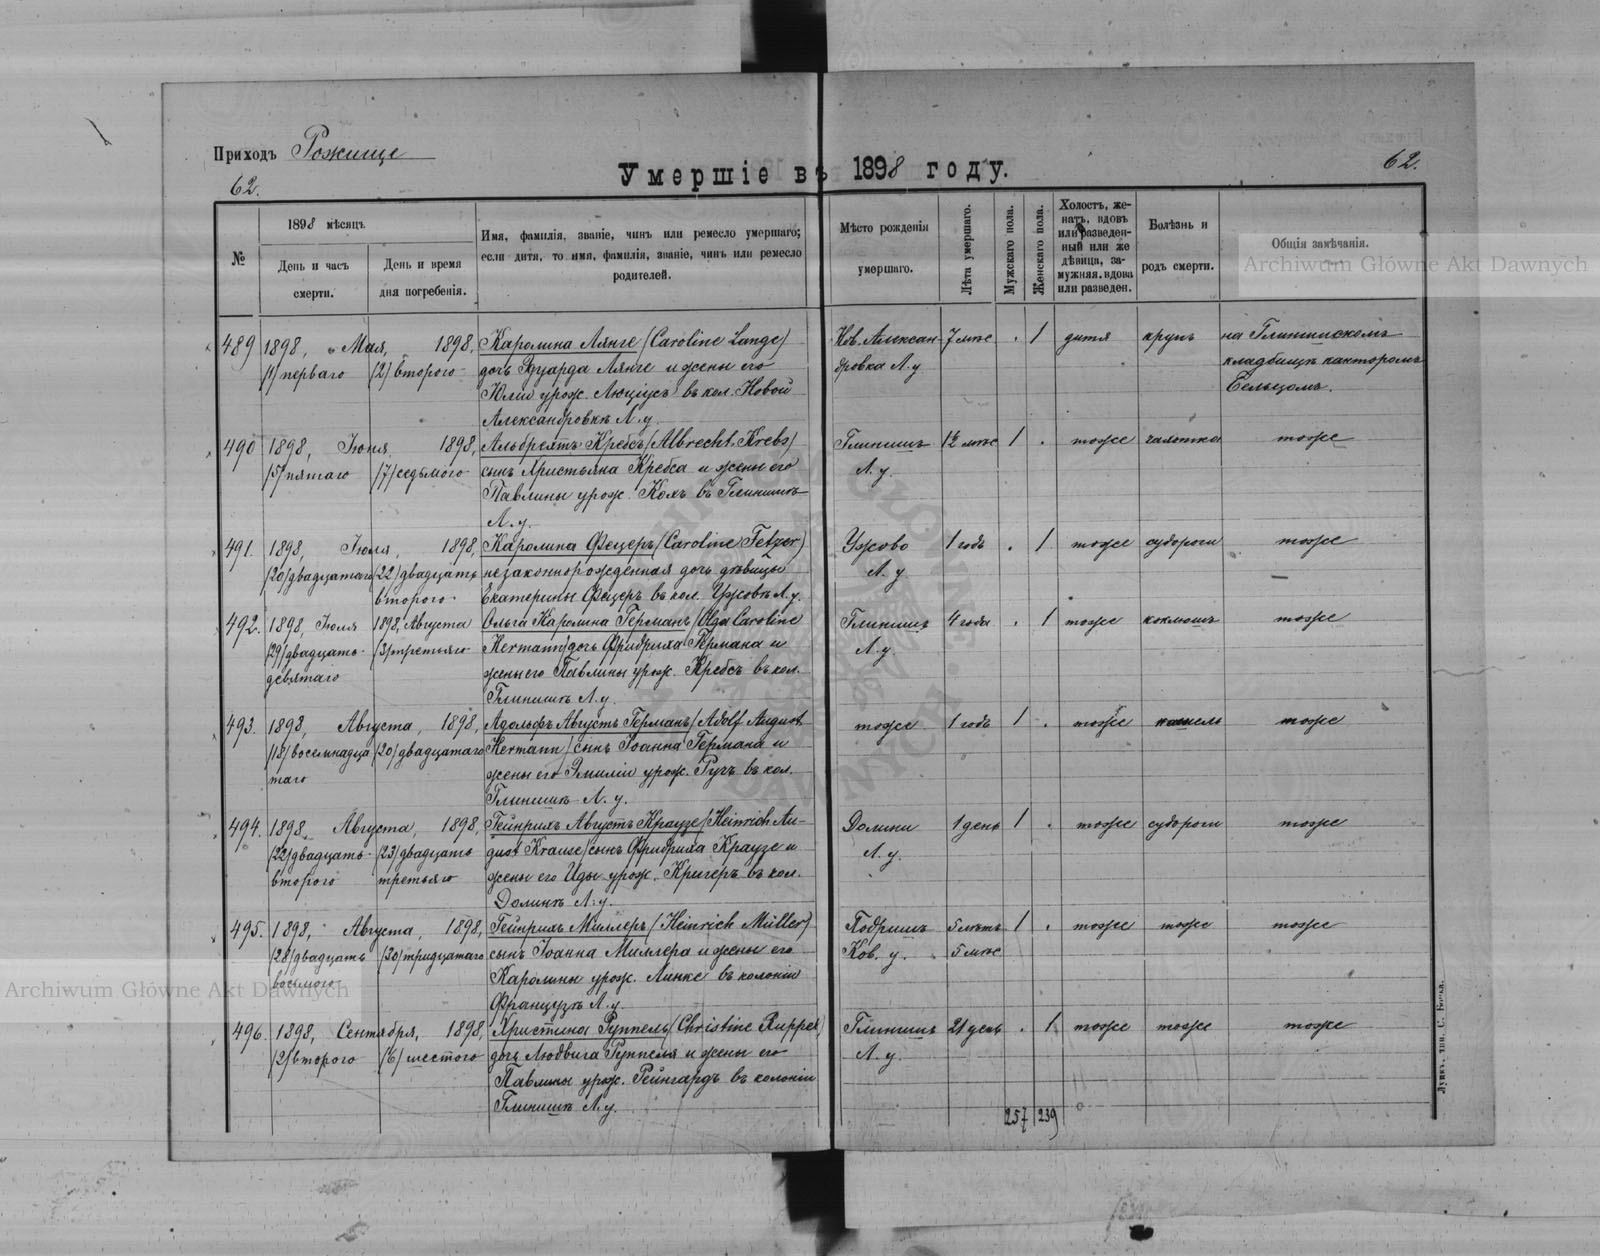 Приходъ Рожище
62.
Умершіе въ 1898 году.
62.
№
1898 мѣсяцъ
День и часъ смерти.
День и время дня погребенія.
Имя, фамилія, званіе, чинъ или ремесло умершаго;
если дитя, то имя, фамилія, званіе, чинъ или ремесло
родителей.
Мѣсто рожденія
умершаго.
Лѣта умершаго.
Мужскаго пола.
Женскаго пола.
Холостъ, же-
натъ, вдовъ
или разведен-
ный или же
дѣвица, за-
мужняя, вдова
или разведен.
Болѣзнь и
родъ смерти.
Общія замѣчанія.
Archiwum Główne Akt Dawnych
489 1898, Мая, 1898, Каролина Лянге (Caroline Lange) Нов. Алексан- 7 мѣс . 1 дитя крупъ на Глинишскомъ
(1) перваго (2) второго дочь Эдуарда Лянге и жены его дровка Л. у. кладбищѣ канторомъ
Юліи урож. Люціусъ въ кол. Новой Бельцомъ.
Александровкѣ Л. у.
490 1898, Іюня, 1898, Альбрехтъ Кребсъ (Albrecht Krebs) Глинищъ 1½ мѣс 1 . тоже чахотка тоже
(5) пятаго (7) седьмого сынъ Христьяна Кребса и жены его Л. у.
Павлины урож. Колъ въ Глинишкѣ
Л. у.
491. 1898, Іюля, 1898, Каролина Фецеръ (Caroline Fetzer) Ужово 1 годъ . 1 тоже судороги тоже
(20) двадцатаго (22) двадцать незаконнорожденная дочь дѣвицы Л. у
второго Екатерины Фецеръ въ кол. Ужовѣ Л. у.
492. 1898, Іюля 1898, Августа Ольга Каролина Германъ (Olga Caroline Глинищъ 4 года . 1 тоже коклюшъ тоже
(29) двадцать- (3) третьяго Hermann) дочь Фридриха Германа и Л. у.
девятаго жены его Павлины урож. Кребсъ въ кол.
Глинишкѣ Л. у.
493. 1898, Августа, 1898, Адольфъ Августъ Германъ (Adolf August тоже 1 годъ 1 . тоже кашель тоже
(18) восемнадца (20) двадцатаго Hermann) сынъ Іоанна Германа и
таго жены его Эмиліи урож. Ручъ въ кол.
Глинишкѣ Л. у.
494. 1898, Августа, 1898, Гейнрихъ Августъ Краузе (Heinrich Au- Долины 1 день 1 . тоже судороги тоже
(22) двадцать- (23) двадцать gust Krause) сынъ Фридриха Краузе и Л. у.
второго третьяго жены его Иды урож. Кригеръ въ кол.
Долинѣ Л. у.
495. 1898, Августа, 1898, Гейнрихъ Миллеръ (Heinrich Müller) 5 лѣтъ 1 . тоже тоже тоже
(28) двадцать (30) тридцатаго сынъ Іоанна Миллера и жены его Ков. у. 5 мѣс
восьмого Каролины урож. Линке въ колоніи
Французѣ Л. у
496. 1898, Сентября, 1898, Христина Руппель (Christine Ruppel) Глинищъ 21 день . 1 тоже тоже тоже
(2) второго (6) шестого дочь Людвига Руппеля и жены его Л. у.
Павлины урож. Рейнгардъ въ колоніи
Глинишкѣ Л. у.
257 239
Луцкъ, тип. С. Бокса.
Archiwum Główne Akt Dawnych